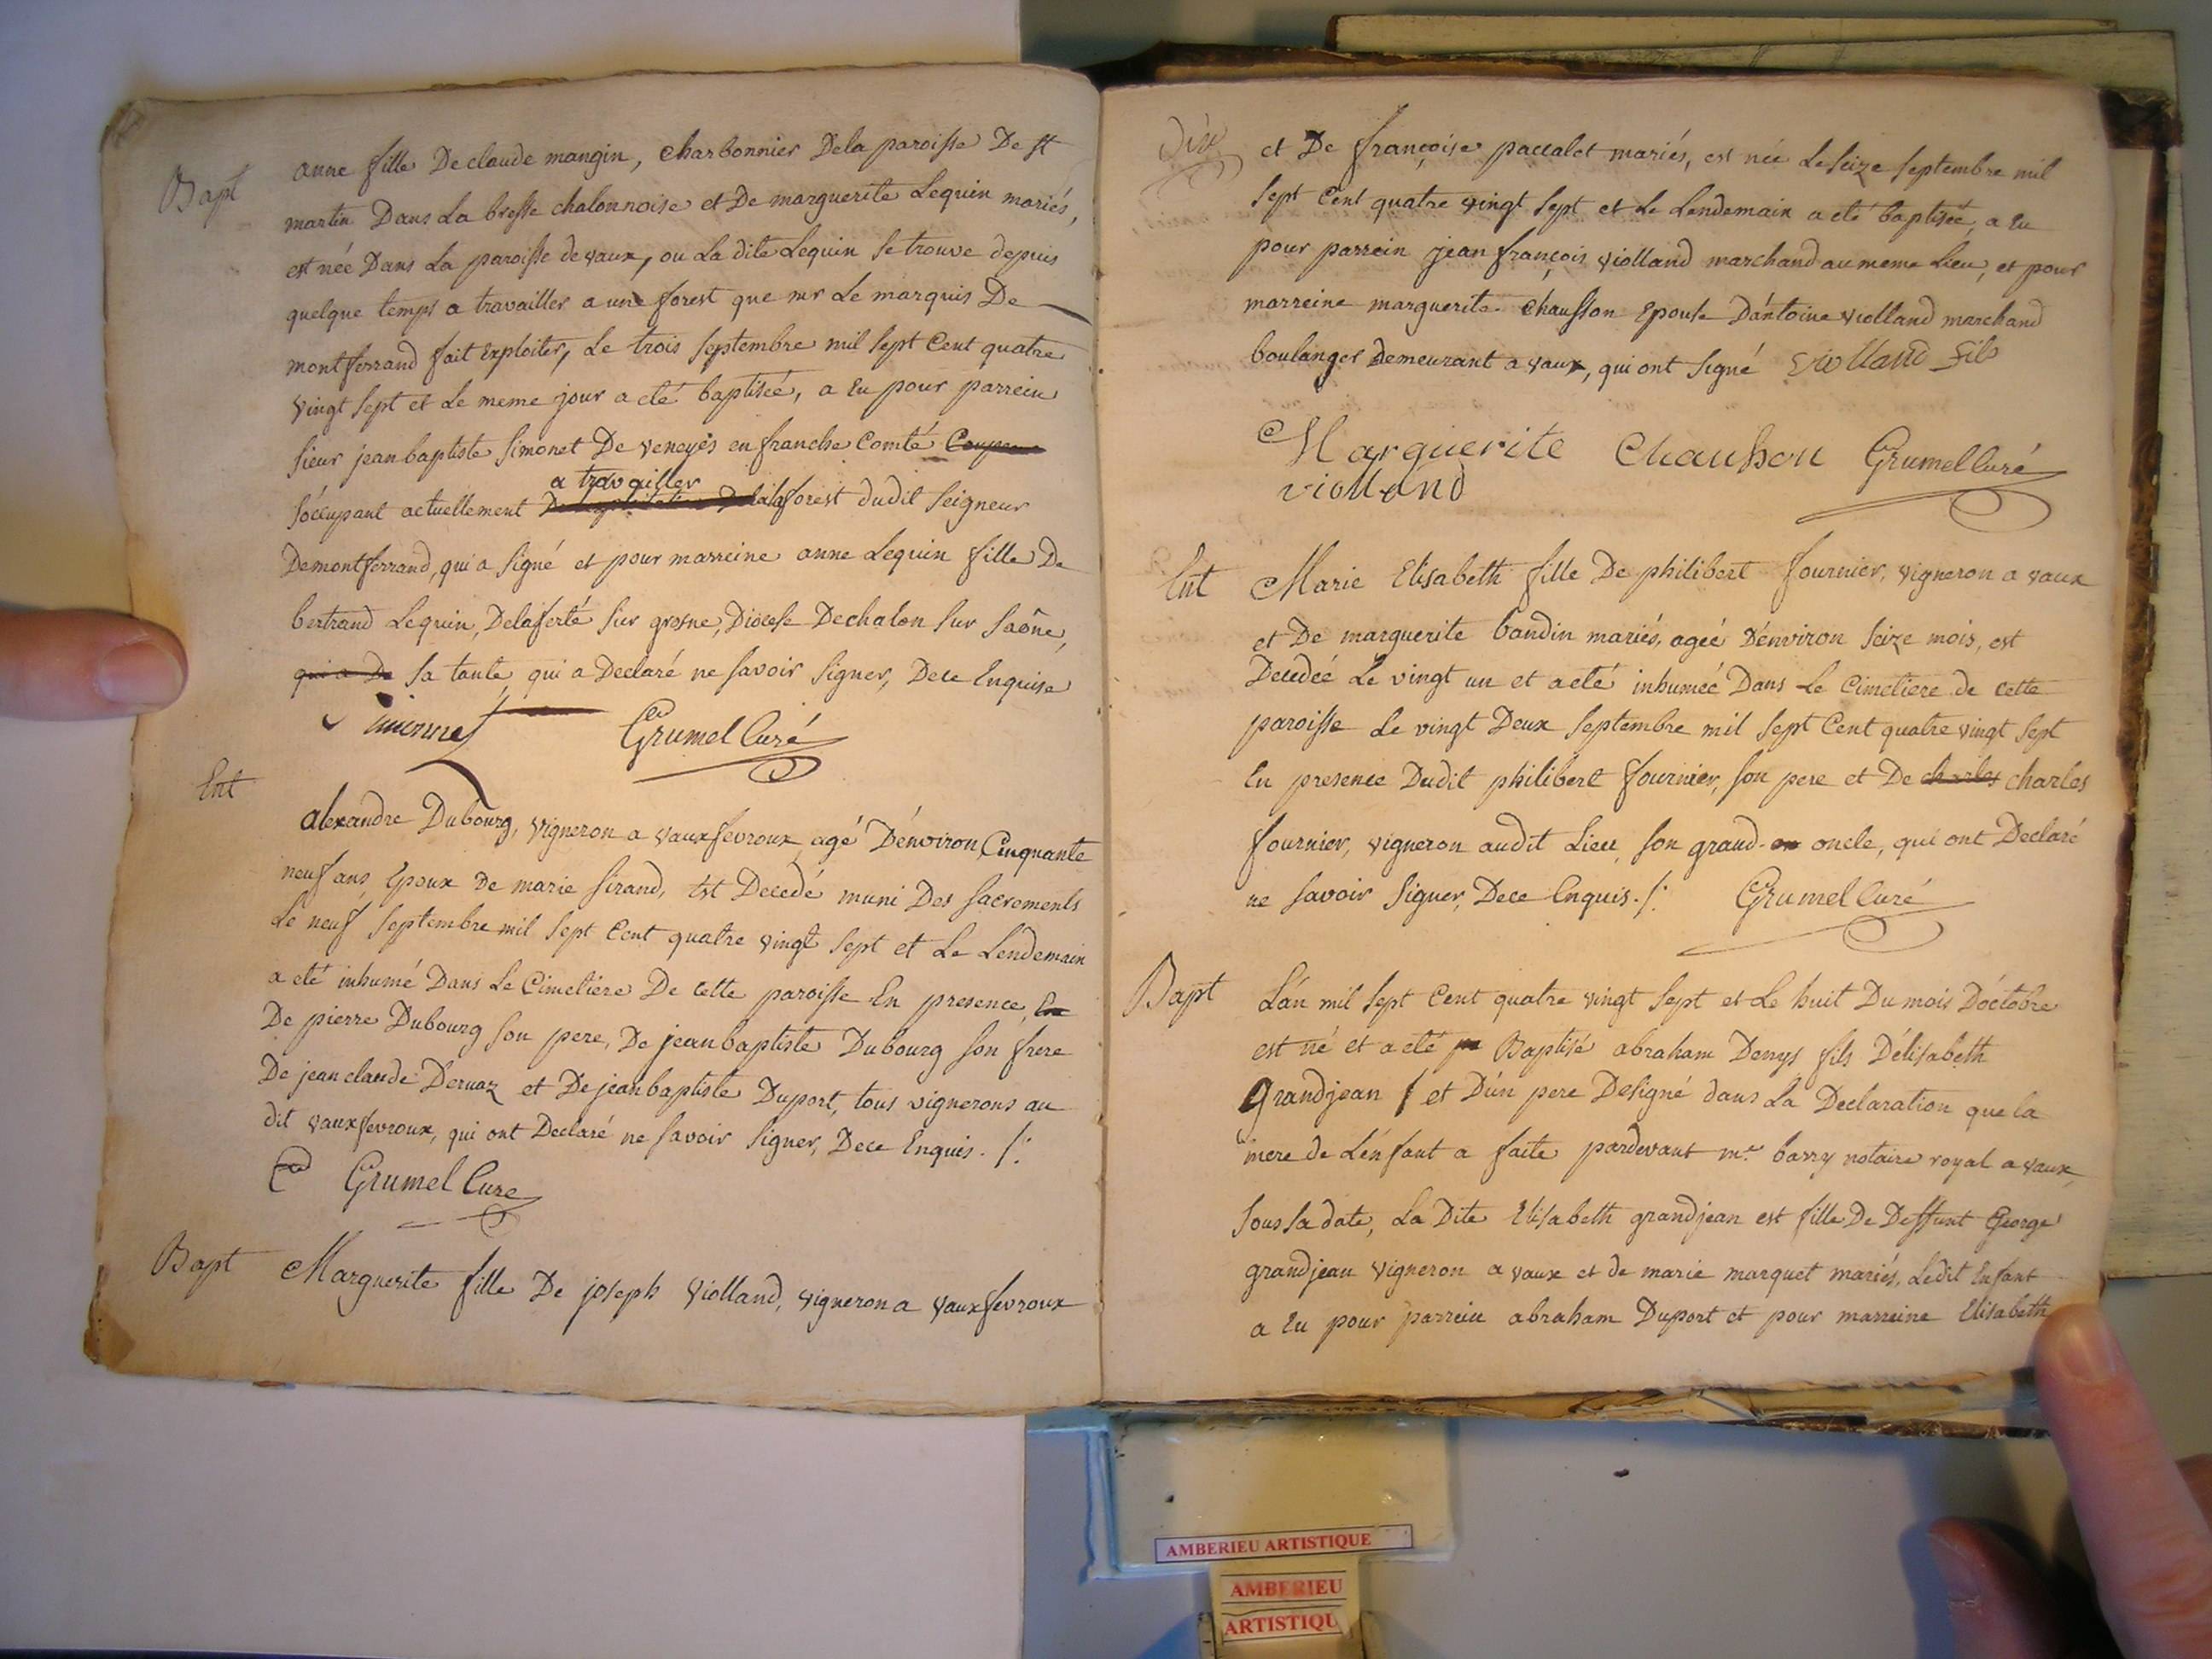 Bapt
anne fille De claude mangin, charbonnier Dela paroisse De st
martin Dans La bresse chalonnoise et De marguerite Lequin mariés,
est née Dans La paroisse de vaux, ou La dite Lequin se trouve depuis
quelque temps a travailler a une forest que mr Le marquis De
montferrand fait Exploiter, Le trois septembre mil sept Cent quatre
vingt sept et Le meme jour a eté baptisée, a Eu pour parrein
sieur jean baptiste Simonet De veneyes en franche Comté
a travailler
s'occupant actuellement a la forest dudit seigneur
De montferrand, qui a signé et pour marreine anne Lequin fille De
bertrand Lequin, Delaferté sur grosne, Diocese De chalon sur saône,
qui a De sa tante, qui a Declaré ne savoir signer, De ce Enquise
Simonnet Grumel Curé
Ent
alexandre Dubourg, vigneron a vauxfevroux agé D'environ Cinquante
neuf ans, Epoux de marie sirand, Est Decedé muni Des sacrements
Le neuf septembre mil sept Cent quatre vingt sept et Le Lendemain
a eté inhumé Dans Le Cimetiere De cette paroisse En presence, En
De pierre Dubourg son pere, De jean baptiste Dubourg son frere
De jean claude Dervaz et De jean baptiste Duport, tous vignerons au
dit vauxfevroux, qui ont Declaré ne savoir signer, De ce Enquis ./.
Grumel Cure
Bapt
Marguerite fille De joseph Violland, vigneron a vauxfevroux
Dix
et De françoise paccalet mariés, est née Le seize septembre mil
sept Cent quatre vingt sept et Le Lendemain a eté baptisée, a Eu
pour parrein jean françois violland marchand au meme Lieu, et pour
marreine marguerite chausson Epouse D'antoine violland marchand
boulanger Demeurant a vaux, qui ont signé violland fils
Marguerite Chausson Grumel Curé
violland
Ent
Marie Elisabeth fille De philibert fournier, vigneron a vaux
et De marguerite bandin mariés, agée D'environ seize mois, est
Decedée Le vingt un et a eté inhumée Dans Le Cimetiere de cette
paroisse Le vingt Deux septembre mil sept Cent quatre vingt sept
En presence Dudit philibert fournier, son pere et De charles charles
fournier, vigneron audit Lieu, son grand-on oncle, qui ont Declaré
ne savoir signer, De ce Enquis ./. Grumel Curé
Bapt
L'an mil sept Cent quatre vingt sept et Le huit Du mois D'octobre
est né et a eté Baptisé abraham Denys fils D'elisabeth
grandjean / et D'un pere Designé dans La Declaration que la
mere de L'enfant a faite pardevant me barry notaire royal a vaux,
sous sa date, La Dite Elisabeth grandjean est fille De Deffunt George
grandjean vigneron a vaux et de marie marquet mariés, Ledit Enfant
a Eu pour parrein abraham Duport et pour marreine Elisabeth
AMBERIEU ARTISTIQUE
AMBERIEU
ARTISTIQU